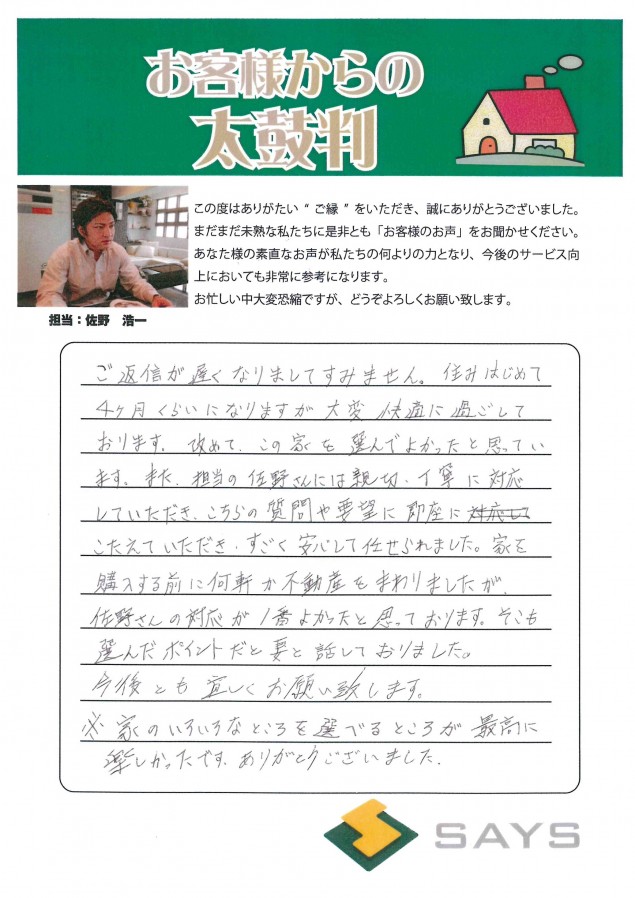 お客様からの
太鼓判
この度はありがたい“ご縁”をいただき、誠にありがとうございました。
まだまだ未熟な私たちに是非とも「お客様のお声」をお聞かせください。
あなた様の素直なお声が私たちの何よりの力となり、今後のサービス向
上においても非常に参考になります。
お忙しい中大変恐縮ですが、どうぞよろしくお願い致します。
担当：佐野　浩一
ご返信が遅くなりましてすみません。住みはじめて
4ヶ月くらいになりますが大変快適に過ごして
おります。改めて、この家を選んでよかったと思ってい
ます。また、担当の佐野さんには親切、丁寧に対応
していただき、こちらの質問や要望に即座に対応して
こたえていただき、すごく安心して任せられました。家を
購入する前に何軒か不動産をまわりましたが、
佐野さんの対応が1番よかったと思っております。そこも
選んだポイントだと妻と話しておりました。
今後とも宜しくお願い致します。
※家のいろいろなところを選べるところが最高に
楽しかったです。ありがとうございました。
SAYS